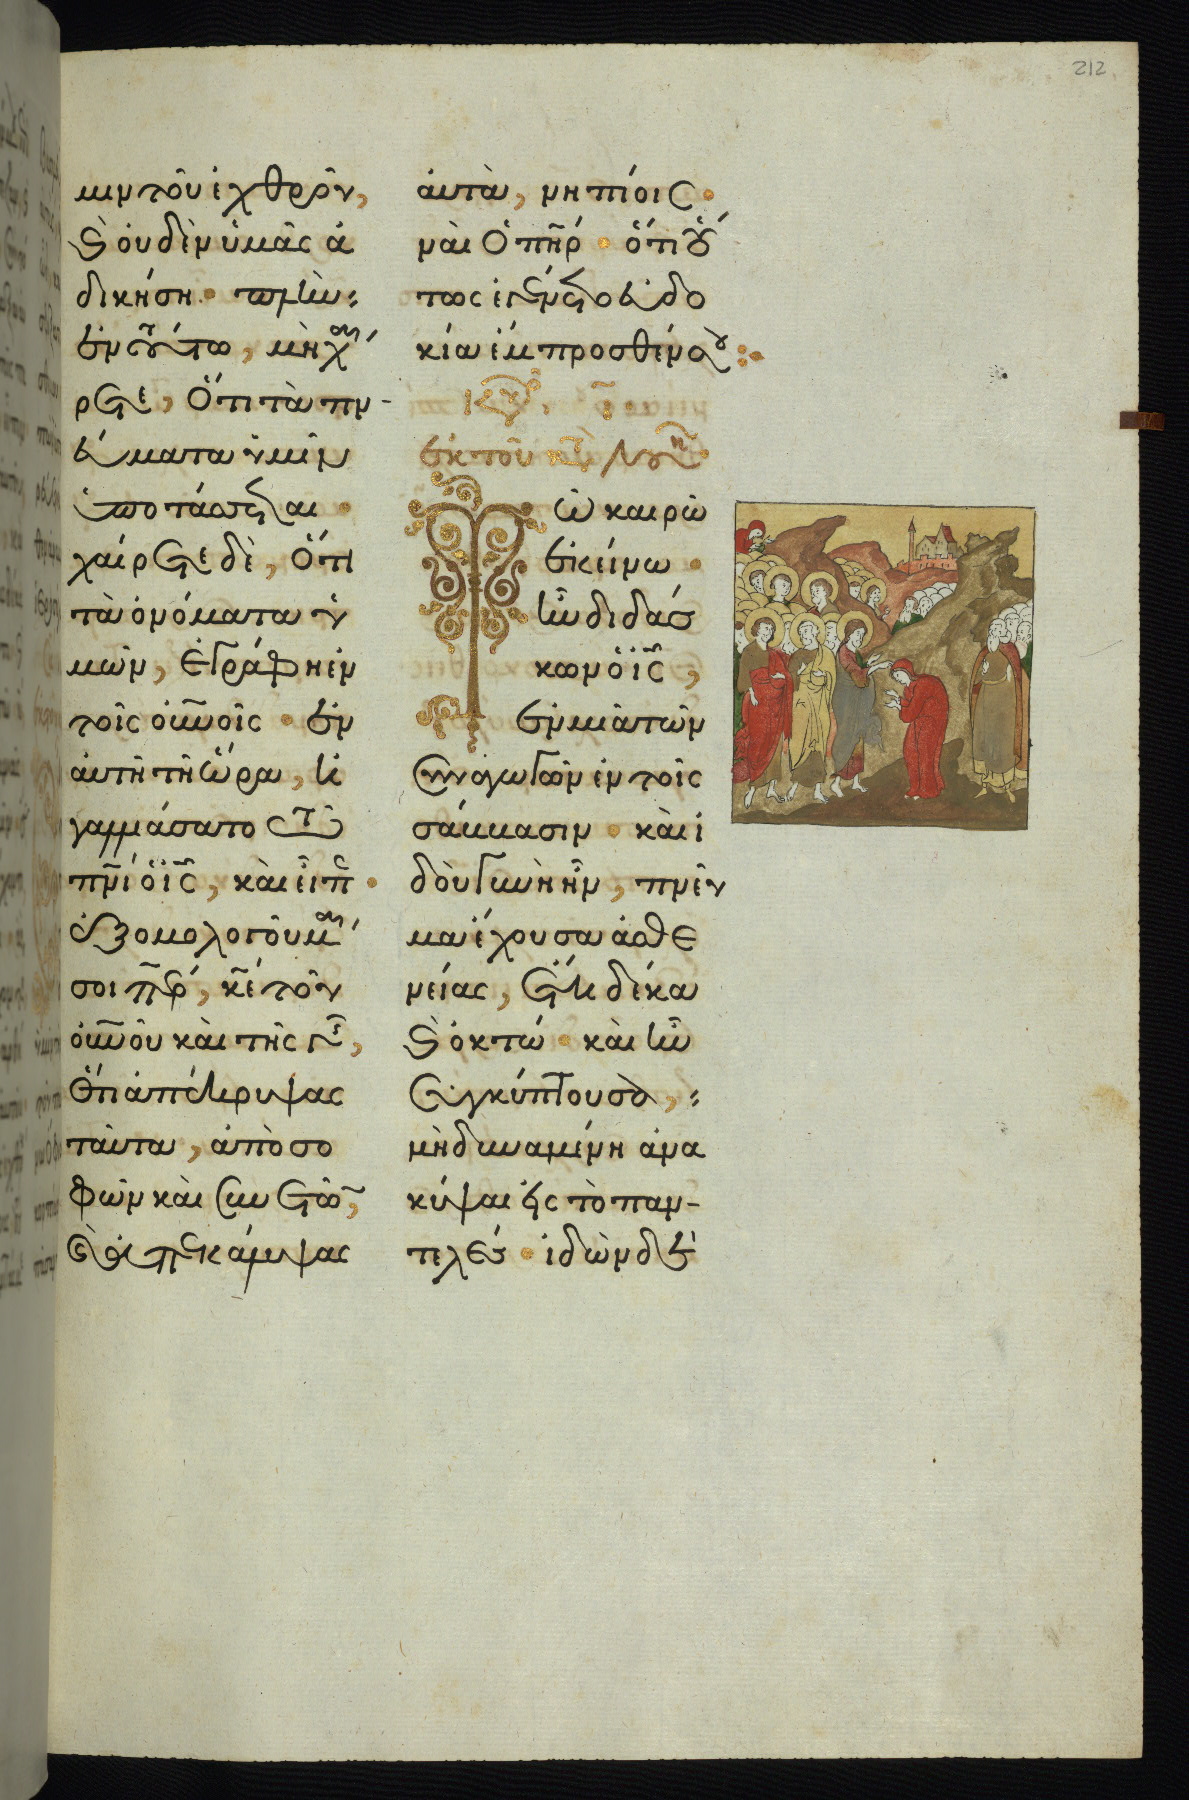 212
μιν τοῦ ἐχθροῦ,
καὶ οὐδὲν ὑμᾶς ἀ
δικήση. πλὴν
ἐν τούτω, μὴ χαί
ρετε, ὅτι τὰ πν
εύματα ὑμῖν
ὑποτάσσεται.
χαίρετε δὲ, ὅτι
τὰ ὀνόματα ὑ
μῶν, ἐγράφη ἐν
τοῖς οὐνοῖς. ἐν
αὐτῆ τῆ ὥρα, ἠ
γαλλιάσατο τῶ
πνι ὁ ἰς, καὶ εἶπε.
ἐξομολογοῦμαί
σοι περ, κε τοῦ
οὐνοῦ καὶ τῆς γῆς,
ὅτι ἀπέκρυψας
ταῦτα, ἀπὸ σο
φῶν καὶ συνετῶν,
καὶ ἀπεκάλυψας
αὐτὰ, νηπίοις.
ναὶ ὁ πηρ. ὅτι οὕ
τως ἐγένετο εὐδο
κία ἔμπροσθέν σου
ἐκ τοῦ κατὰ Λουκᾶν
Τῶ καιρῶ
ἐκείνω.
ἦν διδάσ
κων ὁ ἰς,
ἐν μιᾶ τῶν
συναγωγῶν ἐν τοῖς
σάββασιν. καὶ ἰ
δοὺ γυνὴ ἦν, πνεῦ
μα ἔχουσα ἀσθε
νείας, ἔτη δέκα
καὶ ὀκτώ. καὶ ἦν
συγκύπτουσα,
μὴ δυναμένη ἀνα
κύψαι εἰς τὸ παν
τελές. ἰδὼν δὲ